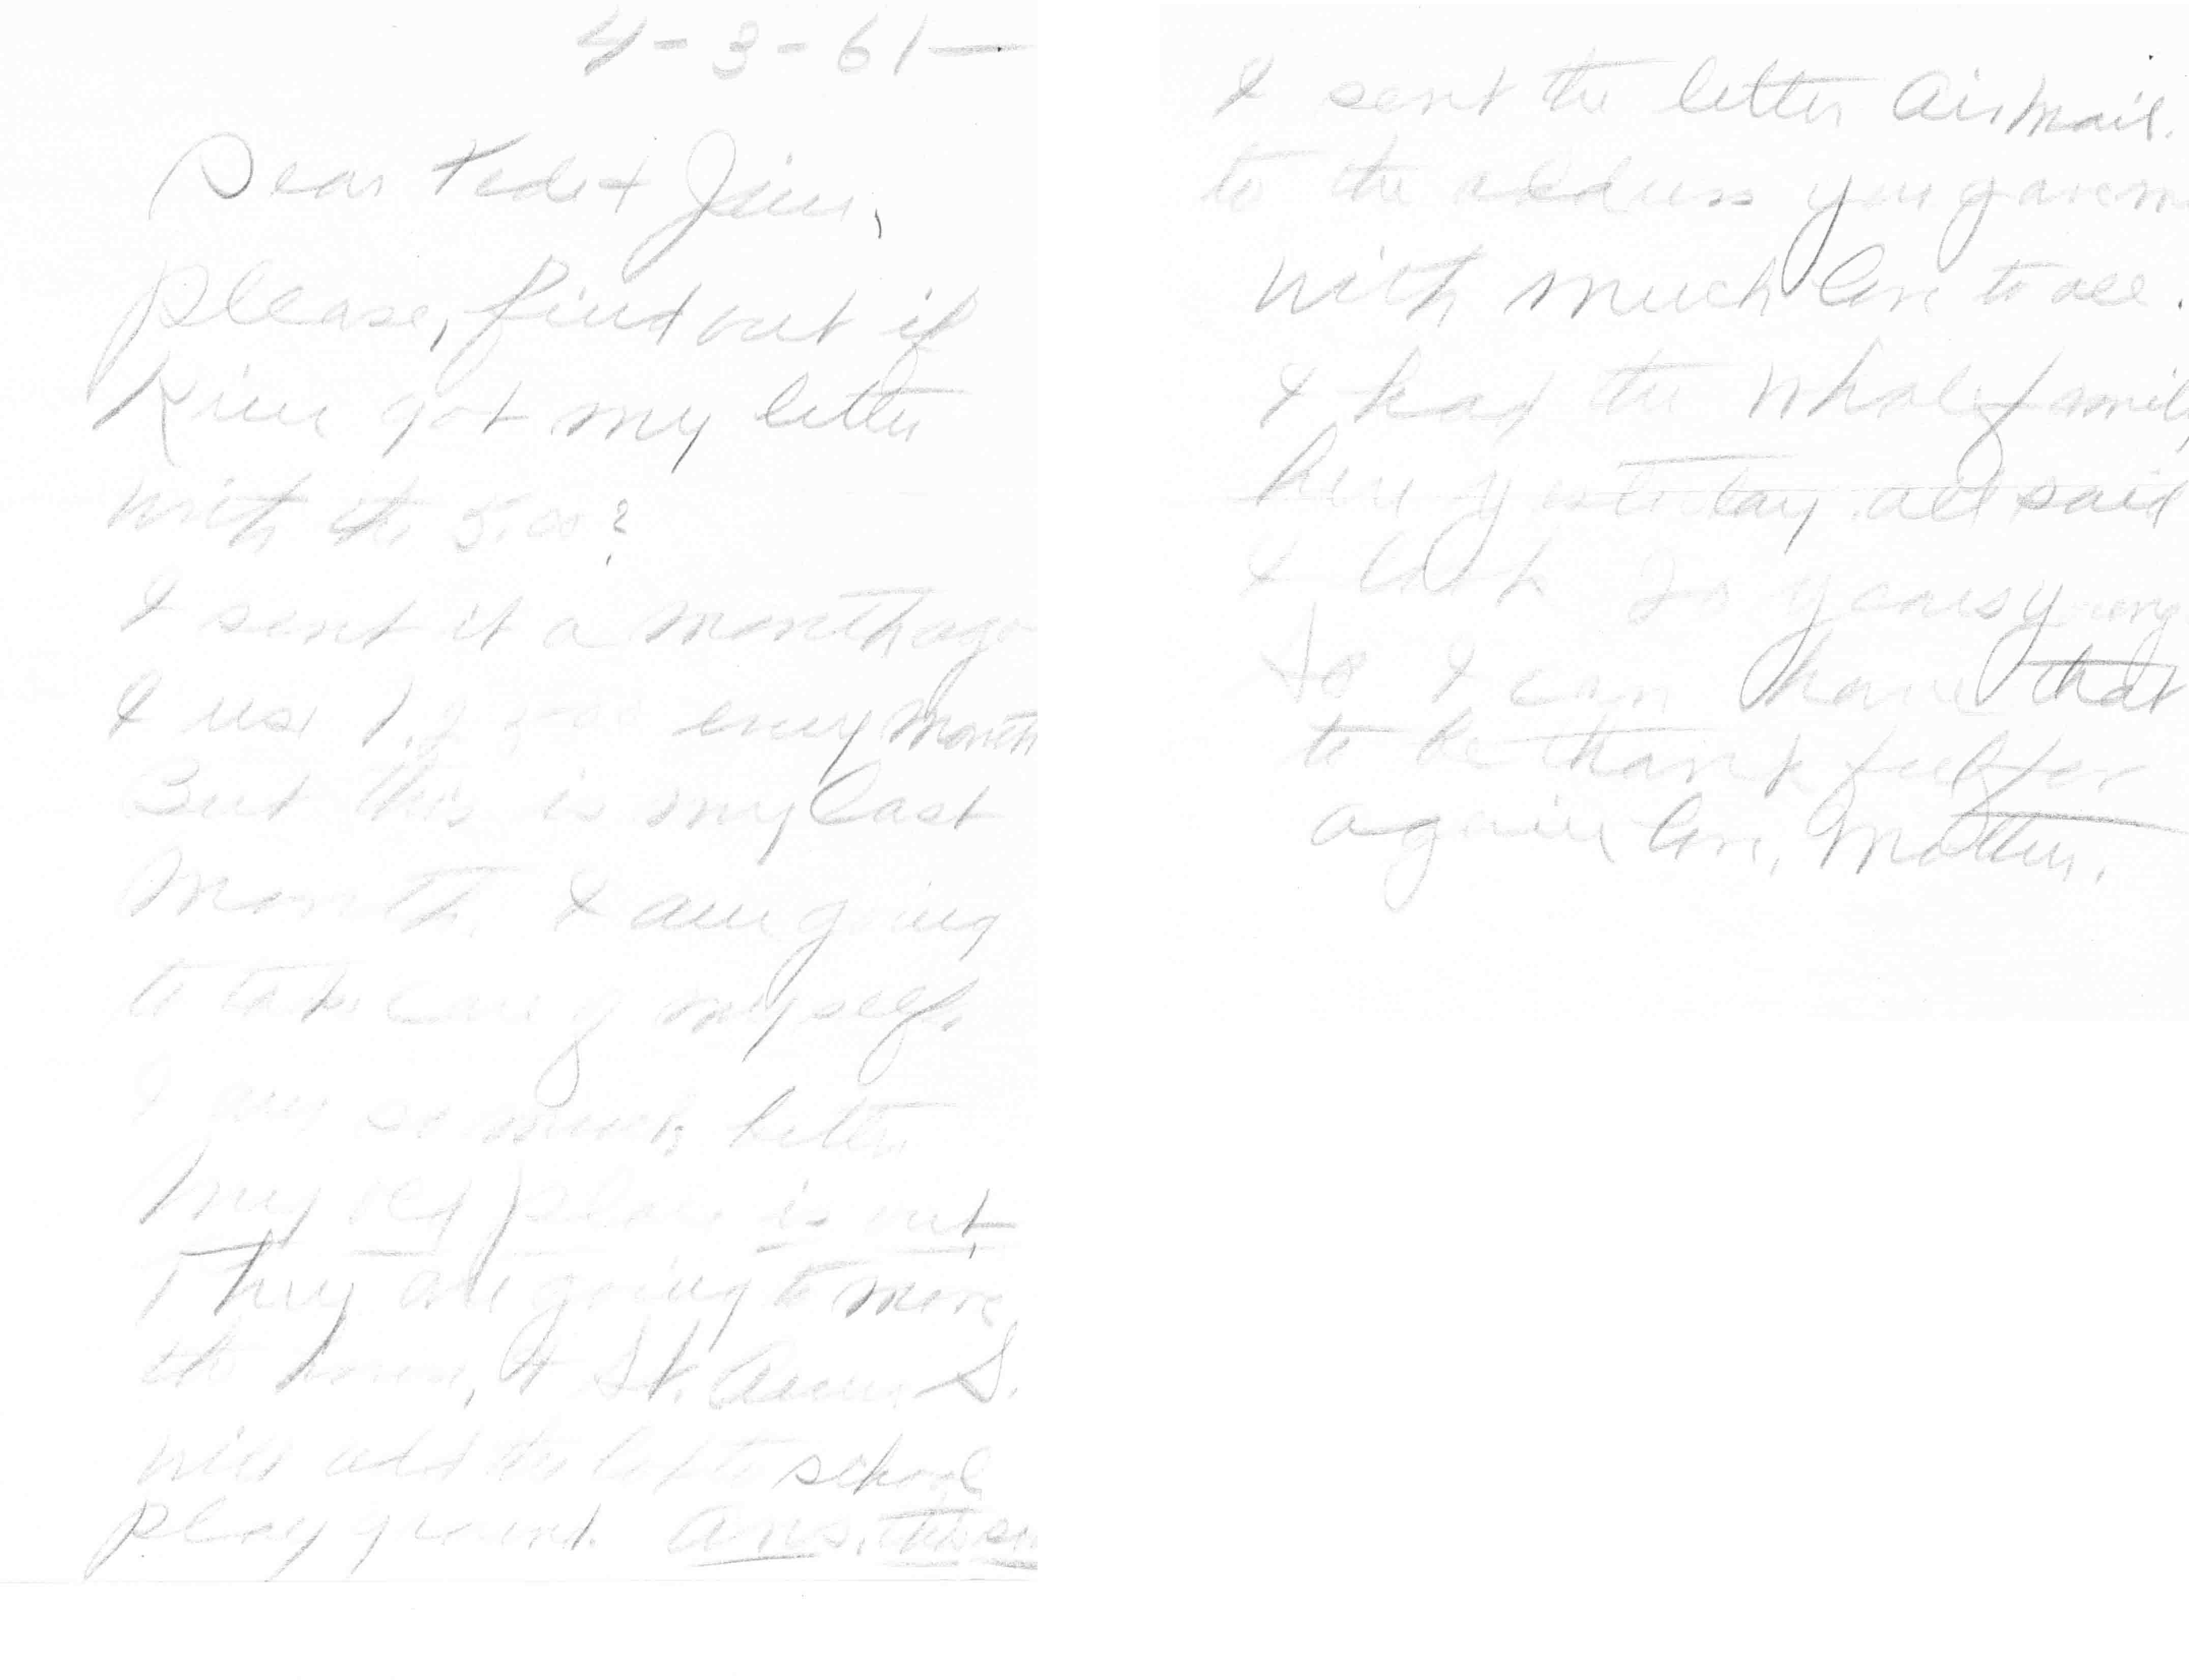 4-3-61-
Dear Ted & Jim,
please, find out if
Kim got my letter
with the 5.00?
I sent it a month ago
I use every month
But this is my last
month. I am going
to take care of myself.
I am so much better
my old place is out.
They are going to move
the house, & St. Anns S.
will add the lot to school
play ground. Ans. this
I sent the letter Air Mail.
to the address you gave m
with much love to all.
I had the whole famil
here yesterday. all said
I look 20 years young
So I can have that
to be thankful for
again love, Mother.